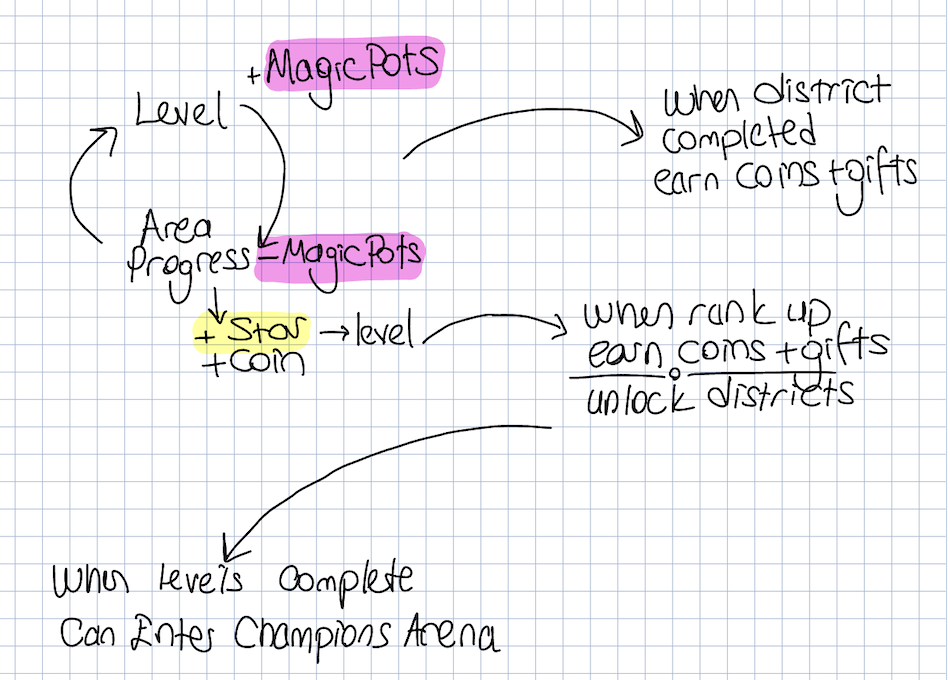 + MagicPots
Level
when district
completed
earn coins + gifts
Area
Progress
- MagicPots
+ Star
+ coin
→ level
when rank up
earn coins + gifts
unlock districts
When Levels Complete
Can Enter Champions Arena